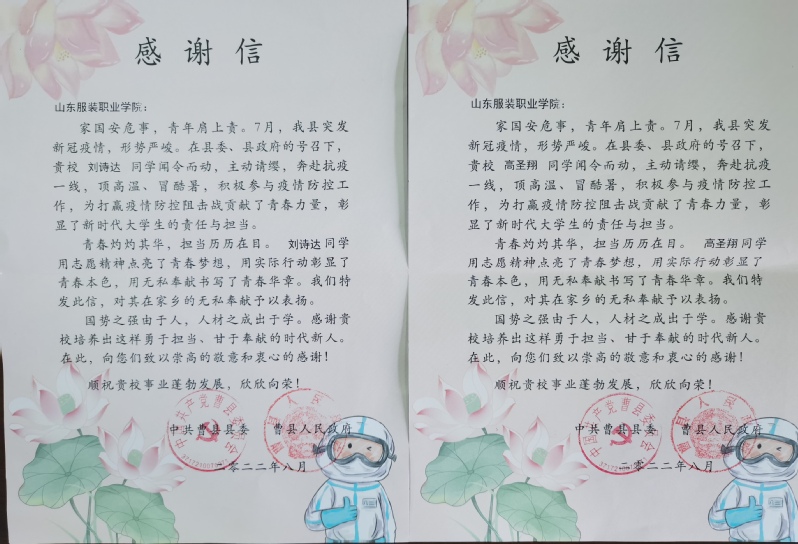 感谢信
山东服装职业学院：
家国安危事，青年肩上责。7月，我县突发
新冠疫情，形势严峻。在县委、县政府的号召下，
贵校 刘诗达 同学闻令而动，主动请缨，奔赴抗疫
一线，顶高温、冒酷暑，积极参与疫情防控工
作，为打赢疫情防控阻击战贡献了青春力量，彰
显了新时代大学生的责任与担当。
青春灼灼其华，担当历历在目。 刘诗达 同学
用志愿精神点亮了青春梦想，用实际行动彰显了
青春本色，用无私奉献书写了青春华章。我们特
发此信，对其在家乡的无私奉献予以表扬。
国势之强由于人，人材之成出于学。感谢贵
校培养出这样勇于担当、甘于奉献的时代新人。
在此，向您们致以崇高的敬意和衷心的感谢！
顺祝贵校事业蓬勃发展，欣欣向荣！
中共曹县县委 曹县人民政府
二零二二年八月
感谢信
山东服装职业学院：
家国安危事，青年肩上责。7月，我县突发
新冠疫情，形势严峻。在县委、县政府的号召下，
贵校 高圣翔 同学闻令而动，主动请缨，奔赴抗疫
一线，顶高温、冒酷暑，积极参与疫情防控工
作，为打赢疫情防控阻击战贡献了青春力量，彰
显了新时代大学生的责任与担当。
青春灼灼其华，担当历历在目。 高圣翔 同学
用志愿精神点亮了青春梦想，用实际行动彰显了
青春本色，用无私奉献书写了青春华章。我们特
发此信，对其在家乡的无私奉献予以表扬。
国势之强由于人，人材之成出于学。感谢贵
校培养出这样勇于担当、甘于奉献的时代新人。
在此，向您们致以崇高的敬意和衷心的感谢！
顺祝贵校事业蓬勃发展，欣欣向荣！
中共曹县县委 曹县人民政府
二零二二年八月